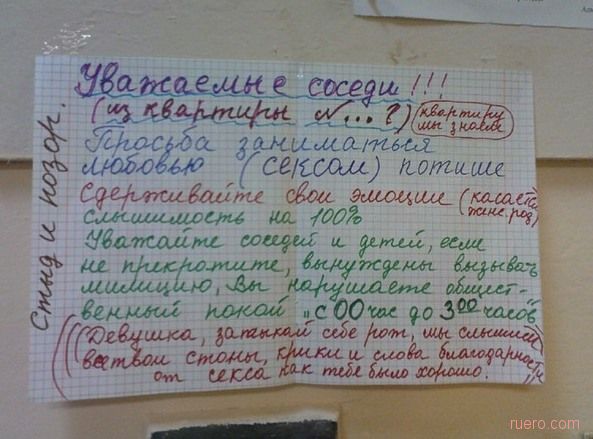 Уважаемые соседи!!!
(из квартиры №...?) (квартиру мы знаем)
Просьба заниматься
любовью (сексом) потише
Сдерживайте свои эмоции (касается
слышимость на 100% женс. род)
Уважайте соседей и детей, если
не прекротите, вынуждены вызывать
милицию, Вы нарушаете общест-
венный покой "с 00 час до 3 00 часов"
((Девушка, затыкай себе рот, мы слышим
все твои стоны, крики и слова благодарности
от секса как тебе было хорошо.))
Стыд и позор.
ruero.com